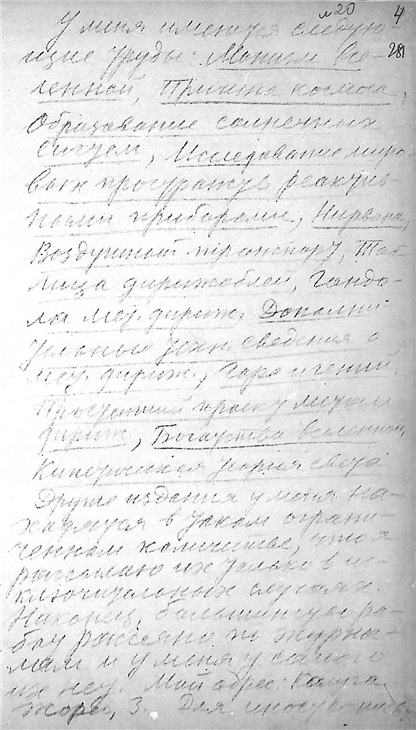 №20 4
28
У меня имеются следую
щие труды: Монизм Все-
ленной, Причина космоса,
Образование солнечных
систем, Исследование миро
вых пространств реактив-
ными приборами, Нирвана,
Воздушный транспорт, Таб
лица дирижаблей, Гондо-
ла мет. дириж. Дополни
тельные техн. сведения о
мет. дириж., Горе и гений
Простейший проект металл
дириж, Богатства вселенной,
Кинетическая теория света
Другие издания у меня на-
ходятся в таком ограни-
ченном количестве, что я
рассылаю их только в ис-
ключительных случаях.
Наконец, большинство ра-
бот рассеяно по журна-
лам и у меня у самого
их нет. Мой адрес: Калуга
Жорес, 3. Для иностранцев